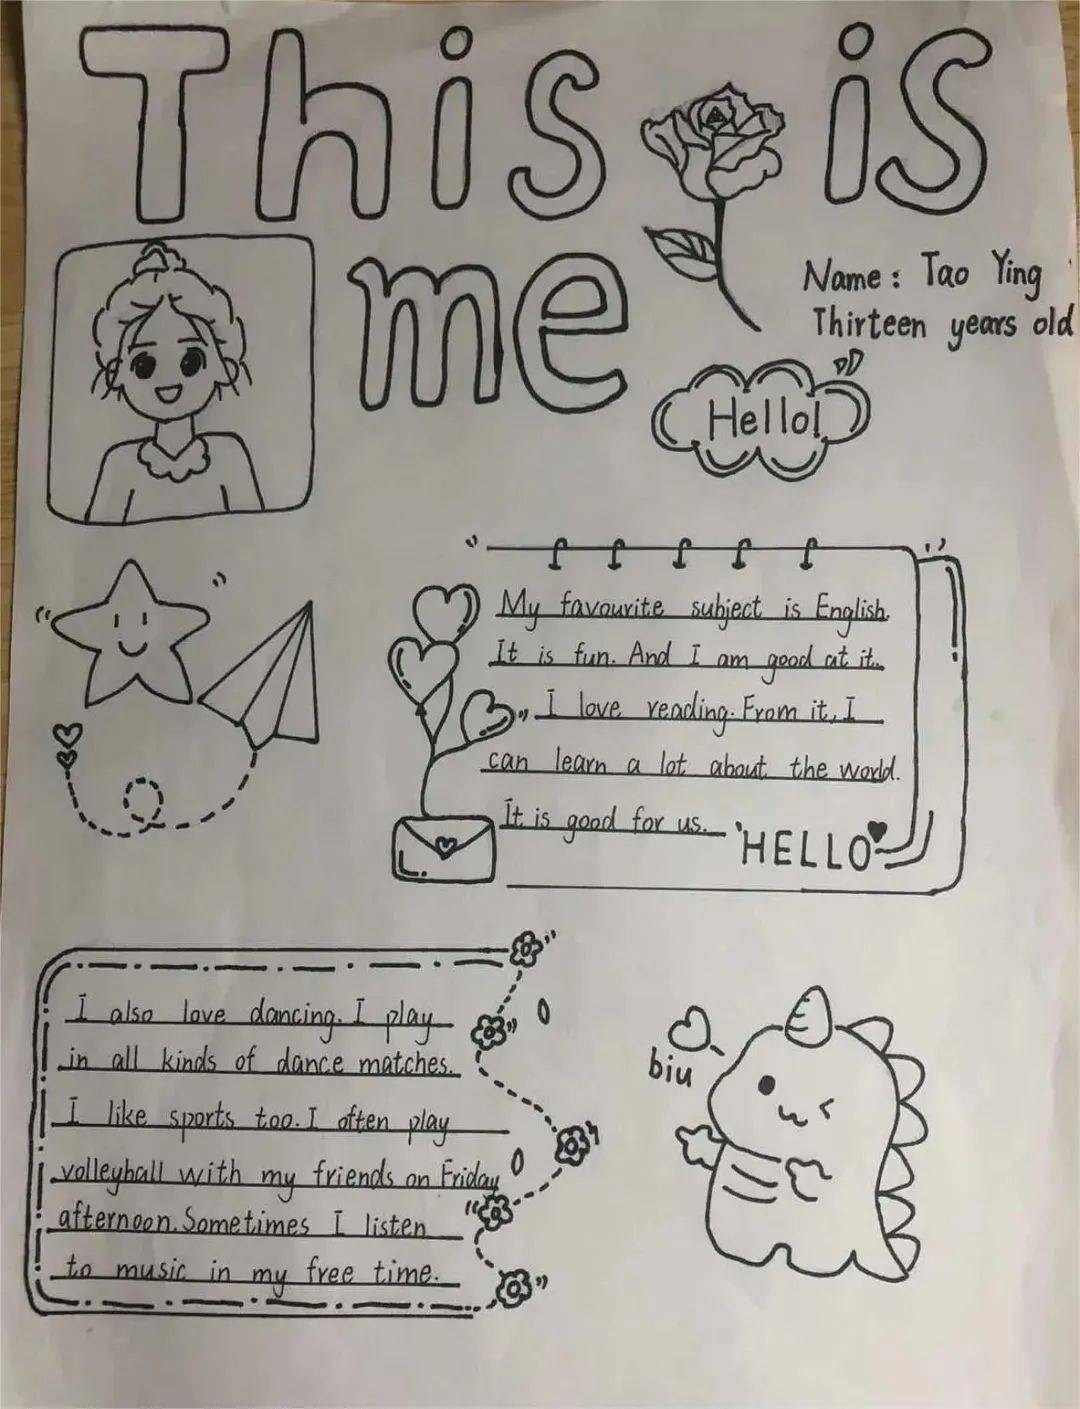 This is
me
Name: Tao Ying
Thirteen years old
Hello!
My favourite subject is English.
It is fun. And I am good at it.
I love reading. From it, I
can learn a lot about the world.
It is good for us.
HELLO
I also love dancing. I play
in all kinds of dance matches.
I like sports too. I often play
volleyball with my friends on Friday
afternoon. Sometimes I listen
to music in my free time.
biu